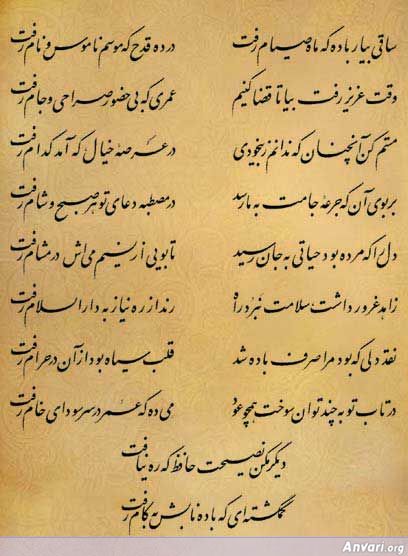 ساقی بیار باده که ماه صیام رفت درده قدح که موسم ناموس و نام رفت
وقت عزیز رفت بیا تا قضا کنیم عمری که بی حضور صراحی و جام رفت
مستم کن آنچنان که ندانم ز بیخودی در عرصهٔ خیال که آمد کدام رفت
بر بوی آن که جرعهٔ جامت به ما رسد در مصطبه دعای تو هر صبح و شام رفت
دل را که مرده بود حیاتی به جان رسید تا بویی از نسیم می‌اش در مشام رفت
زاهد غرور داشت سلامت نبرد راه رند از ره نیاز به دارالسلام رفت
نقد دلی که بود مرا صرف باده شد قلب سیاه بود از آن در حرام رفت
در تاب توبه چند توان سوخت همچو عود می ده که عمر در سر سودای خام رفت
دیگر مکن نصیحت حافظ که ره نیافت
گمگشته‌ای که باده نابش به کام رفت
Anvari.org